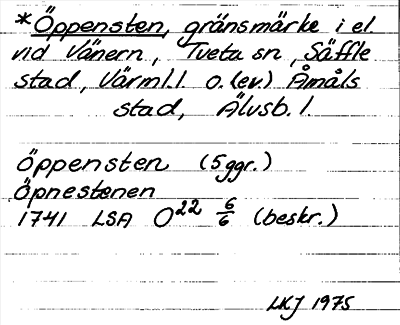 *Öppensten, gränsmärke i el.
vid Vänern, Tveta sn, Säffle
stad, Värml.l. o. (ev.) Åmåls
stad, Älvsb. l.
Öppensten (5ggr.)
Öpnestenen
1741 LSA O22 6/6 (beskr.)
LKJ 1975